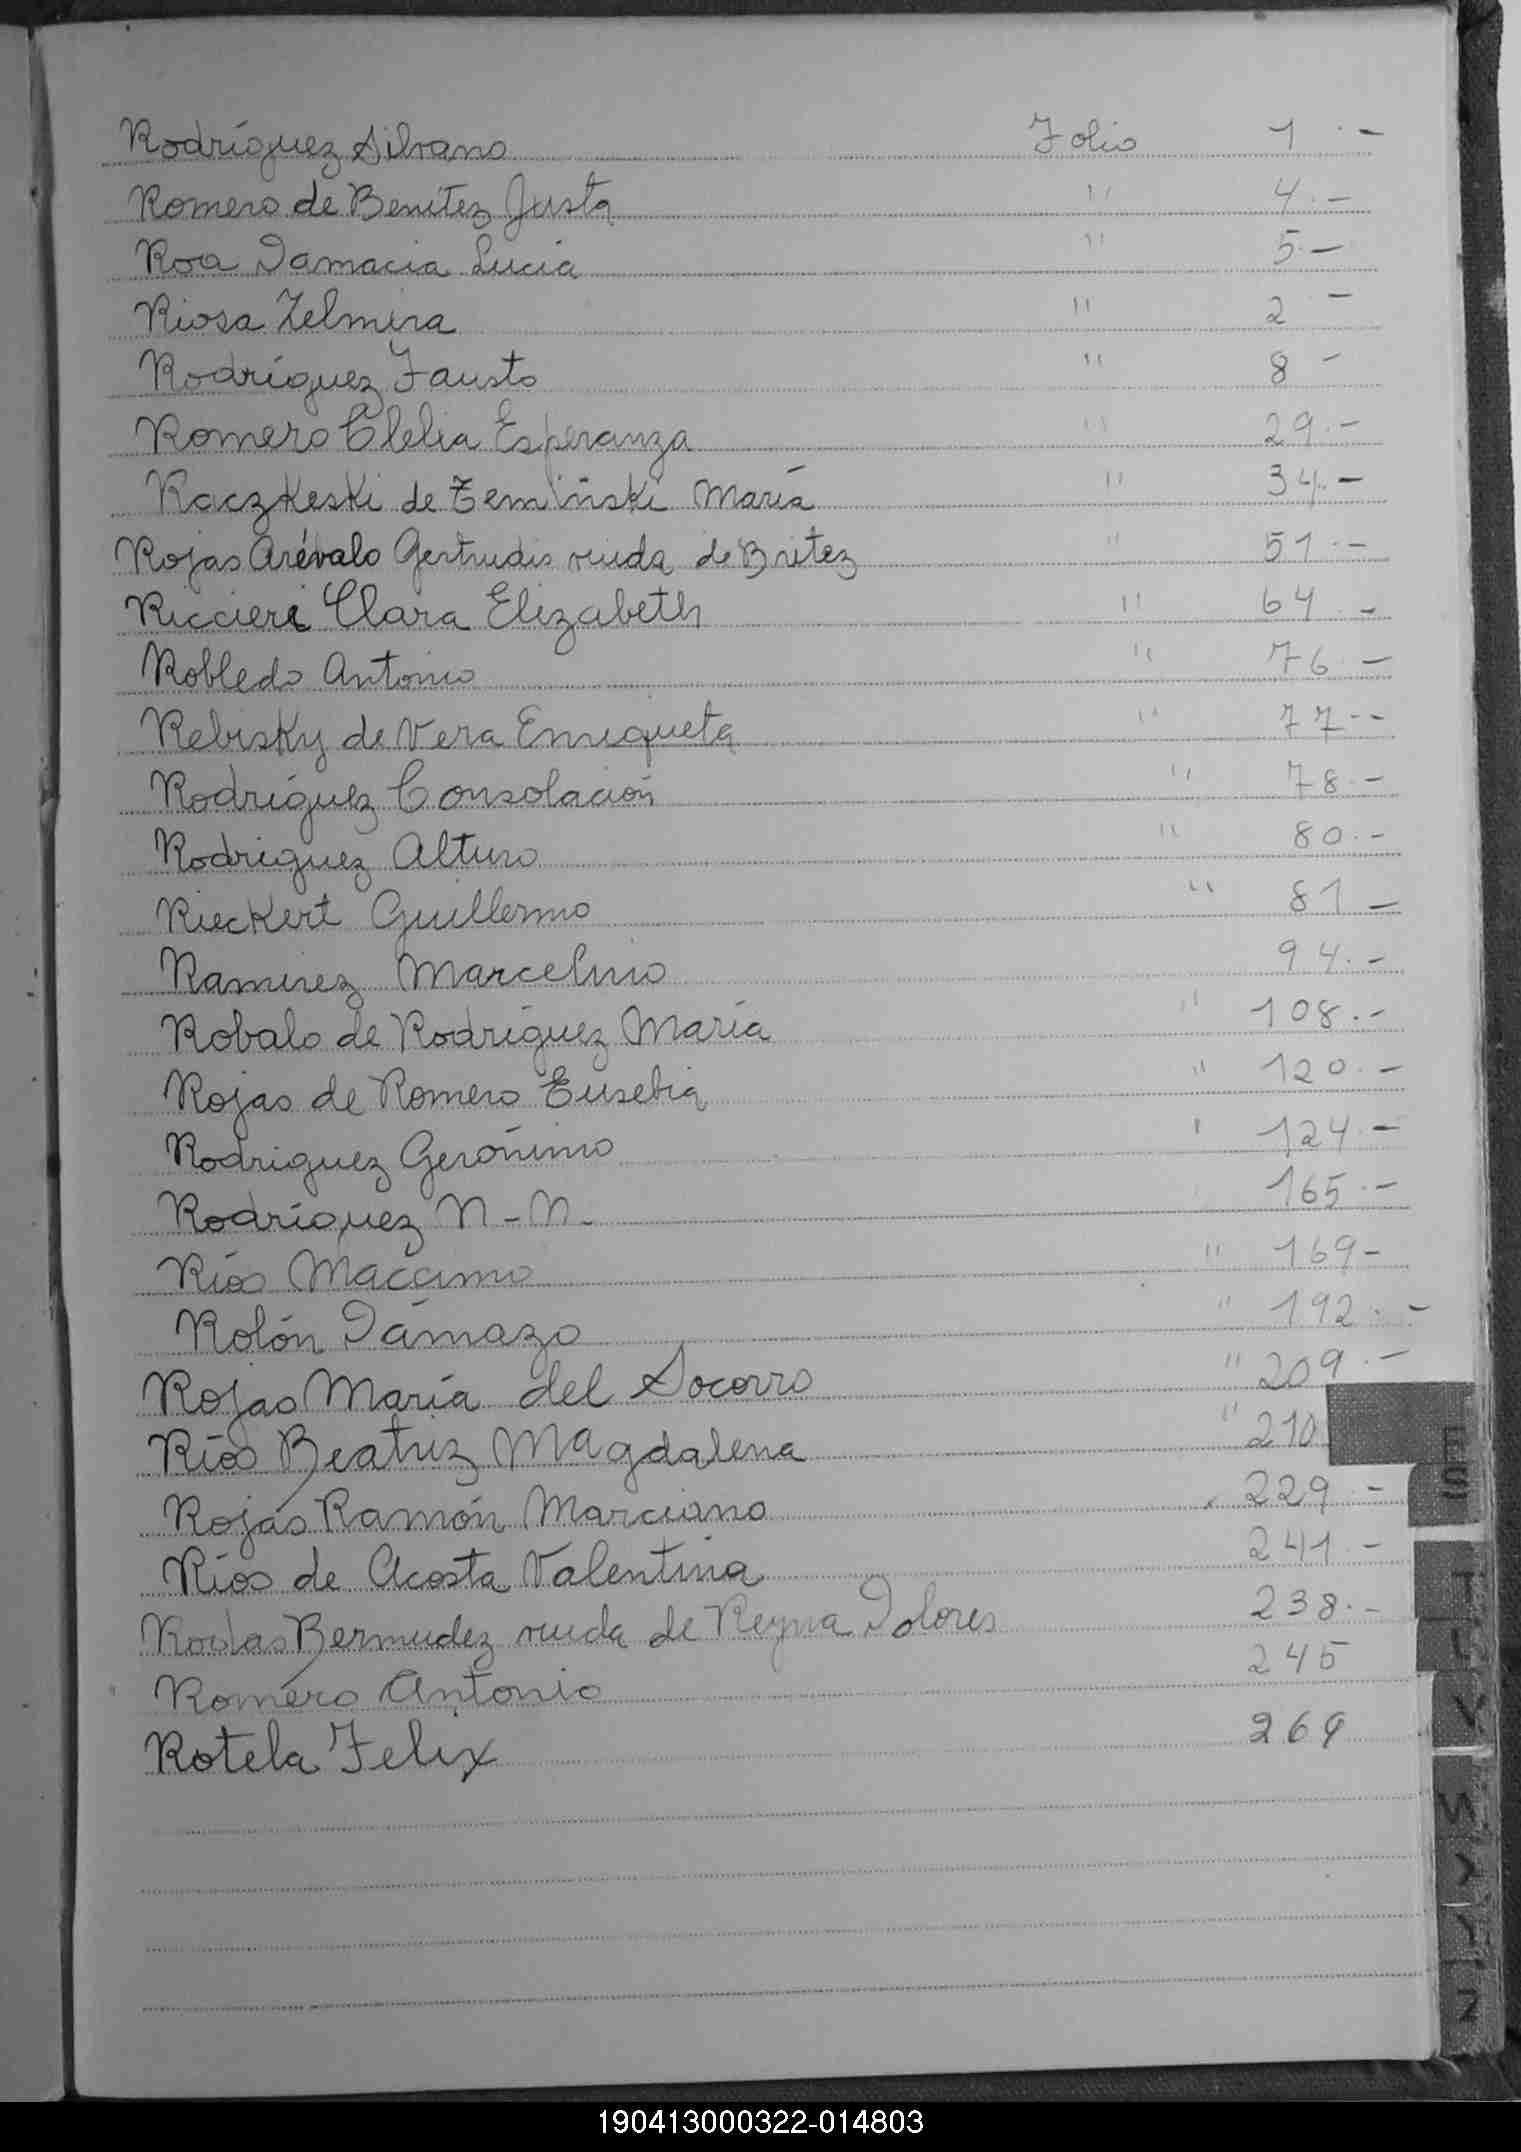 Rodríguez Silvano Folio 1.-
Romero de Benítez Justa " 4.-
Roa Damacia Lucia " 5.-
Riosa Zelmira " 2 -
Rodríguez Fausto " 8 -
Romero Clelia Esperanza " 29.-
Raczkeski de Zemiñski María " 34.-
Rojas Arévalo Gertrudis viuda de Britez " 51.-
Riccieri Clara Elizabeth " 64.-
Robledo Antonio " 76.-
Rebisky de Vera Enriqueta " 77.-
Rodríguez Consolación " 78.-
Rodriguez Alturo " 80.-
Rieckert Guillermo " 81 -
Ramirez Marcelino 94.-
Robalo de Rodríguez María " 108.-
Rojas de Romero Eusebia " 120.-
Rodriguez Gerónimo " 124.-
Rodríguez N-N. 165.-
Ríos Maccimo " 169-
Rolón Dámazo " 192.-
Rojas María del Socorro " 209.-
Ríos Beatriz Magdalena " 210
Rojas Ramón Marciano 229.-
Ríos de Acosta Valentina 241.-
Bermudez viuda de Reyna Dolores 238.-
Romero Antonio 245
Rotela Felix 269
R
S
T
U
V
W
X
Y
Z
190413000322-014803